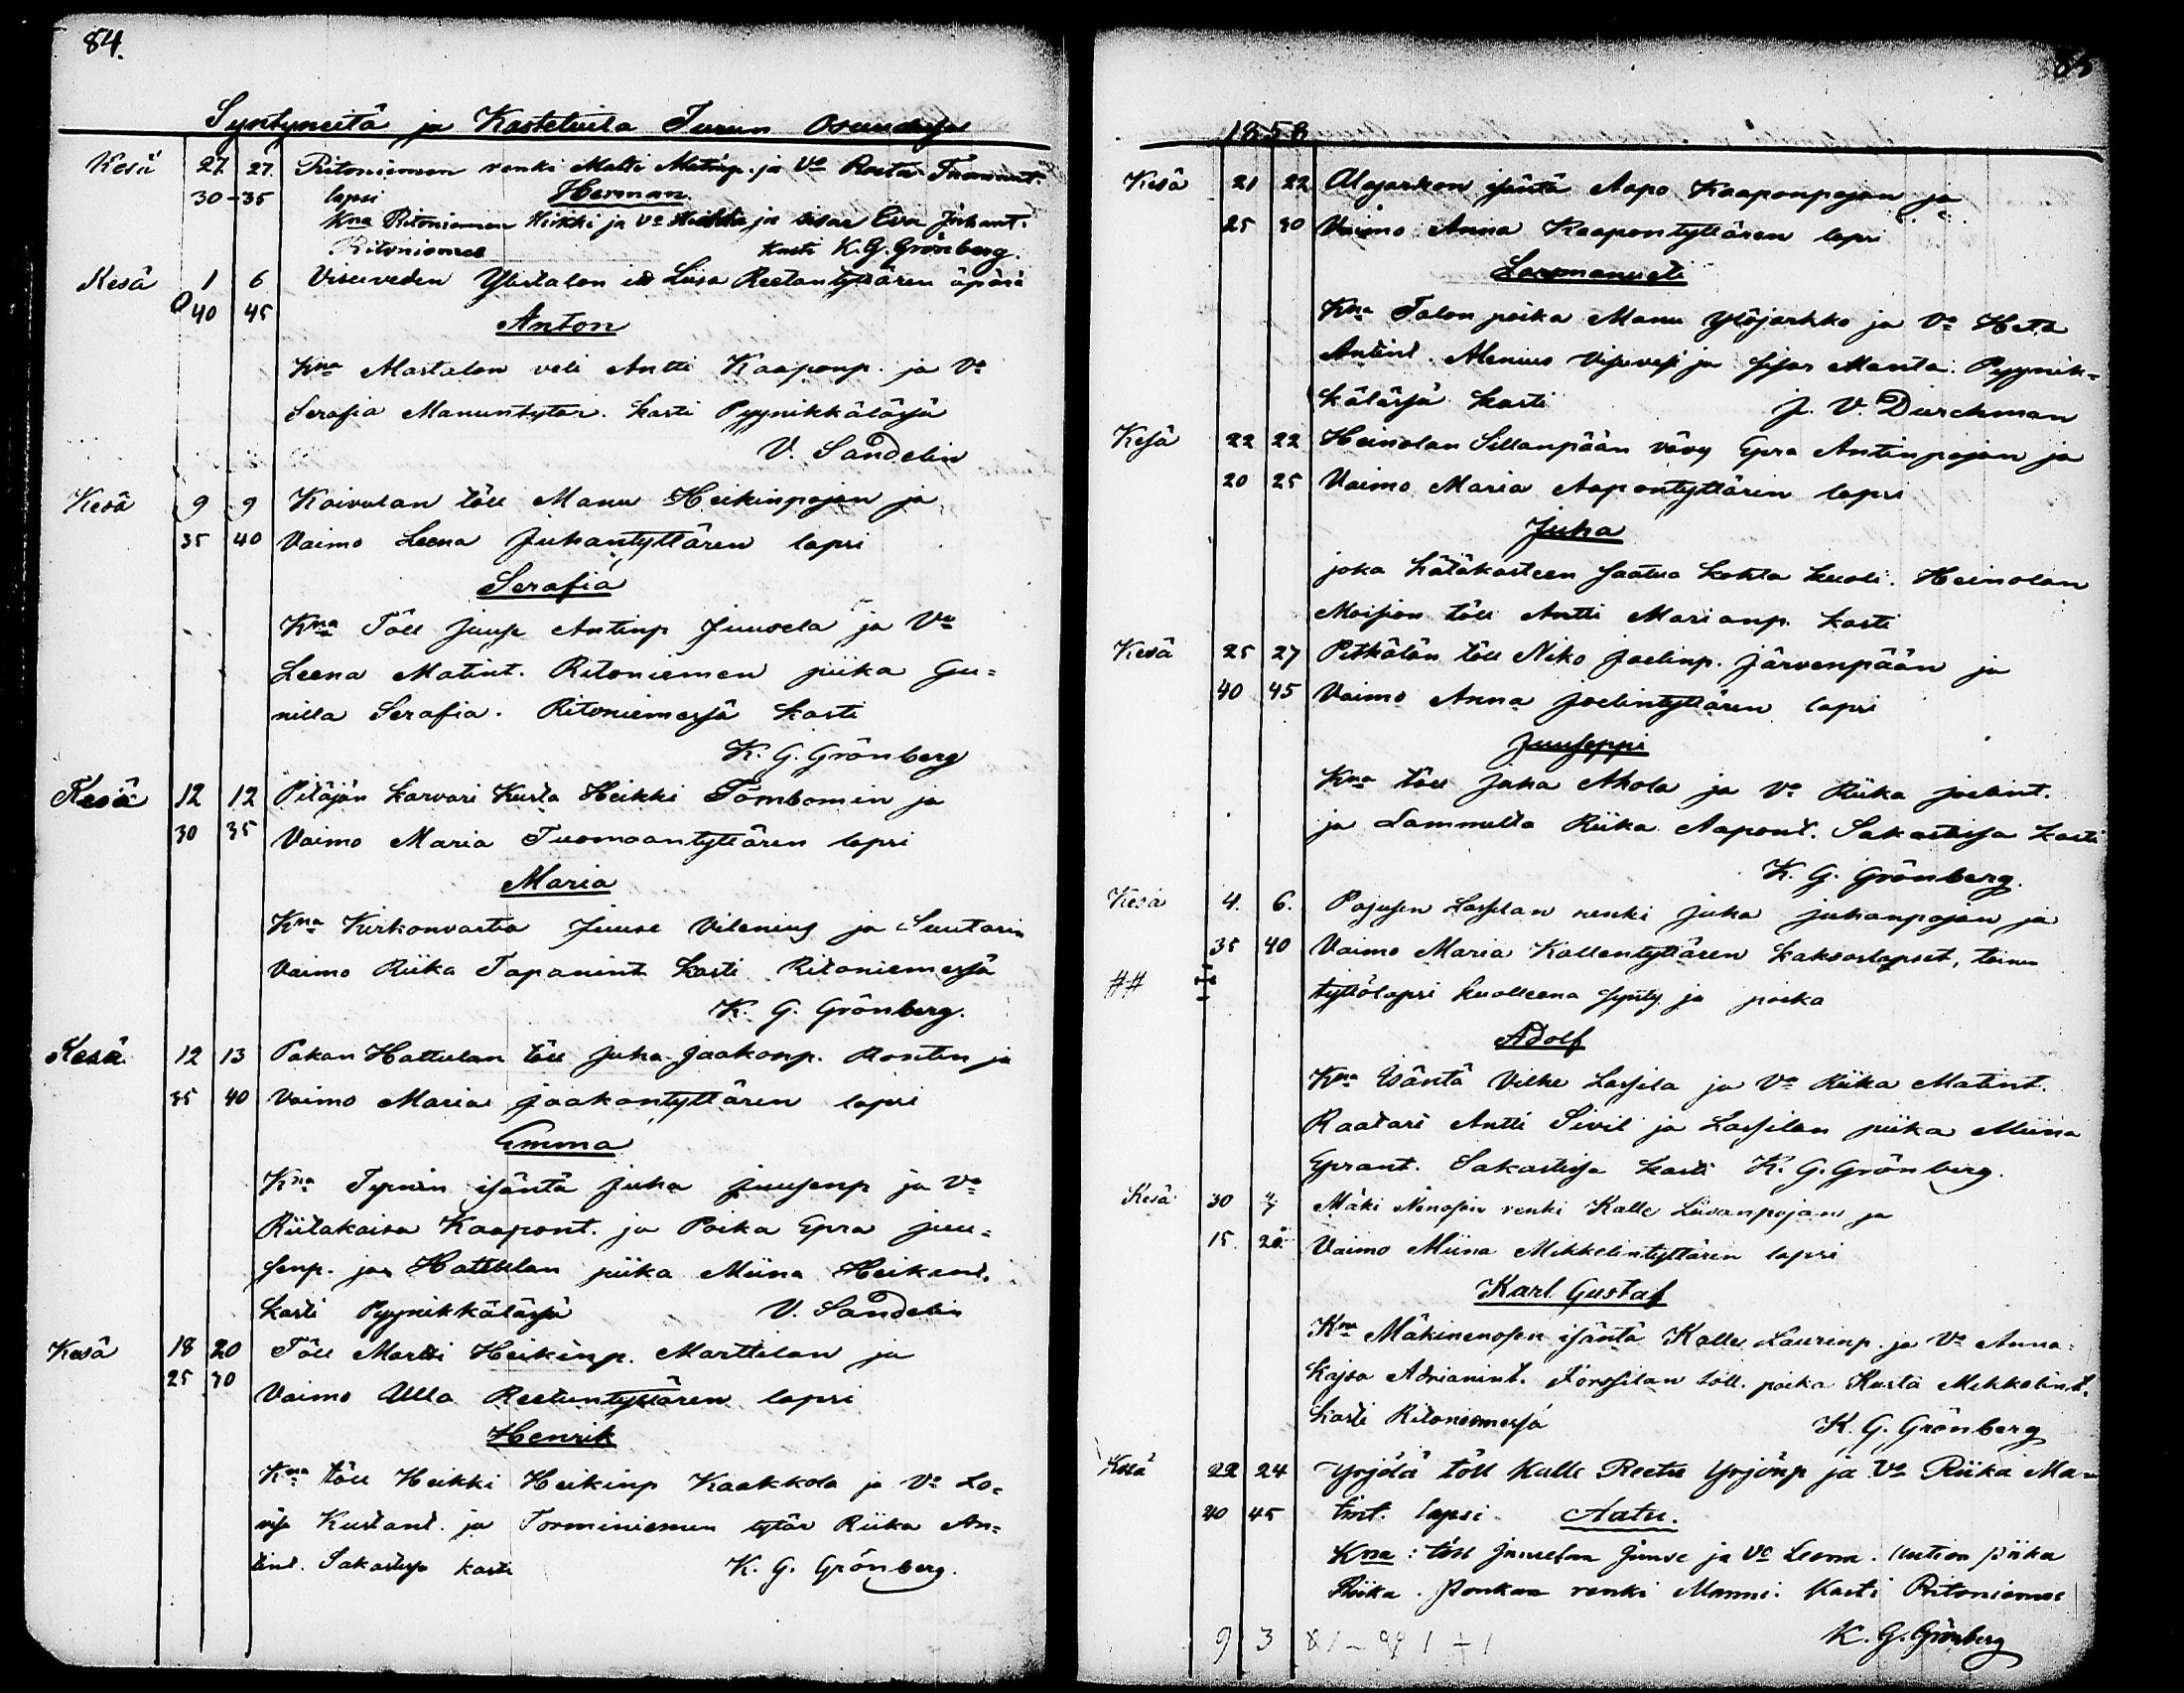 84.
Syntyneitä ja Kastetuita Turun Osuudessa
Kesä 27. 27. Ritoniemen renki Matti Matinp. ja Vo Reeta Tuomaant.
30-35 lapsi Herman.
Kna Ritoniemen Heikki ja Vo ja sisar Eva Juhant.
Ritoniemes kasti K. G. Grönberg.
Kesä 1 6 Visuveden Ylistalon its Liisa Reetantyttären äpärä
40 45 Anton
Kna Alastalon veli Antti Kaaponp. ja Vo
Serafia Manuntytär. kasti Pyynikkälässä
V. Sandelin
Kesä 9 9 Koivulan töll Manu Heikinpojan ja
35 40 Vaimo Leena Juhantyttären lapsi
Serafia
Kna Töll Juuse Antinp Juusela ja Vo
Leena Matint. Ritoniemen piika Gu=
nilla Serafia. Ritoniemessä kasti
K. G. Grönberg
Kesä 12 12 Pitäjän karvari Kusta Heikki Tömbomin ja
30 35 Vaimo Maria Tuomaantyttären lapsi
Maria
Kna Kirkonvartia Juuse Vilenius ja Suutarin
Vaimo Riika Tapanint kasti Ritoniemessä
K. G. Grönberg.
Kesä 12 13 Pakan Hattulan töll Juha Jaakonp. ja
35 40 Vaimo Maria Jaakontyttären lapsi
Emma
Kna Tyrnin isäntä Juha Juusenp ja Vo
Riitakaisa Kaapont. ja Poika Epra Juu=
senp. ja Hattulan piika Miina Heikint.
kasti Pyynikkälässä V. Sandelin
Kesä 18 20 Töll Martti Heikinp. Marttilan ja
25 30 Vaimo Ulla Reetuntyttären lapsi
Henrik
Kna töll Heikki Heikinp Kaakkola ja Vo Lo=
visa Kustant. ja Torminiemen tytär Riika An=
tint. Sakastissa kasti K. G. Grönberg.
85
1858
Kesä 21 22 Alajarkon isäntä Aapo Kaaponpojan ja
25 30 Vaimo Anna Kaapontyttären lapsi
Kna Talon poika Manu Ylöjarkko ja Vo Heta
Antint. Alenius Visuvesi ja sisar Manta. Pyynik=
kälässä kasti J. V. Durchman
Kesä 22 22 Heinolan Sillanpään vävy Epra Antinpojan ja
20 25 Vaimo Maria Aapontyttären lapsi
Juha
joka hätäkasteen saatua kohta kuoli. Heinolan
Moision töll Antti Marianp. kasti
Kesä 25 27 Pitkälän töll Niko Joelinp. Järvenpään ja
40 45 Vaimo Anna Joelintyttären lapsi
Juuseppi
Kna töll Juha Ahola ja Vo Riika Joelint.
ja Lammilta Riika Aapont. Sakastissa kasti
K. G. Grönberg.
Kesä 4. 6. Pajusen Lassilan renki Juha Juhanpojan ja
35 40 Vaimo Maria Kallentyttären kaksoslapset, toinen
## tyttölapsi kuolleena synty ja poika
Adolf
Kna Isäntä Vilhe Lassila ja Vo Riika Matint.
Raatari Antti Sivil ja Lassilan piika Miina
Eprant. Sakastissa kasti K. G. Grönberg.
Kesä 30 4/7 Mäki Nenosen renki Kalle Liisanpojan ja
15. 20. Vaimo Miina Mikkelintyttären lapsi
Karl Gustaf
Kna Mäkinenosen isäntä Kalle Laurinp. ja Vo Anna=
kajsa Adrianint. Forssilan töll. poika Kusta Mikkelint.
kasti Ritoniemessä K. G. Grönberg
Kesä 22 24 Yrjölä töll Kalle Reetu Yrjönp ja Vo Riika Ma=
40 45 tint. lapsi Aatu.
Kna: töll Juuselan Juuse ja Vo Leena. piika
Riika. renki Manni. kasti Ritoniemes
K. G. Grönberg
9 3